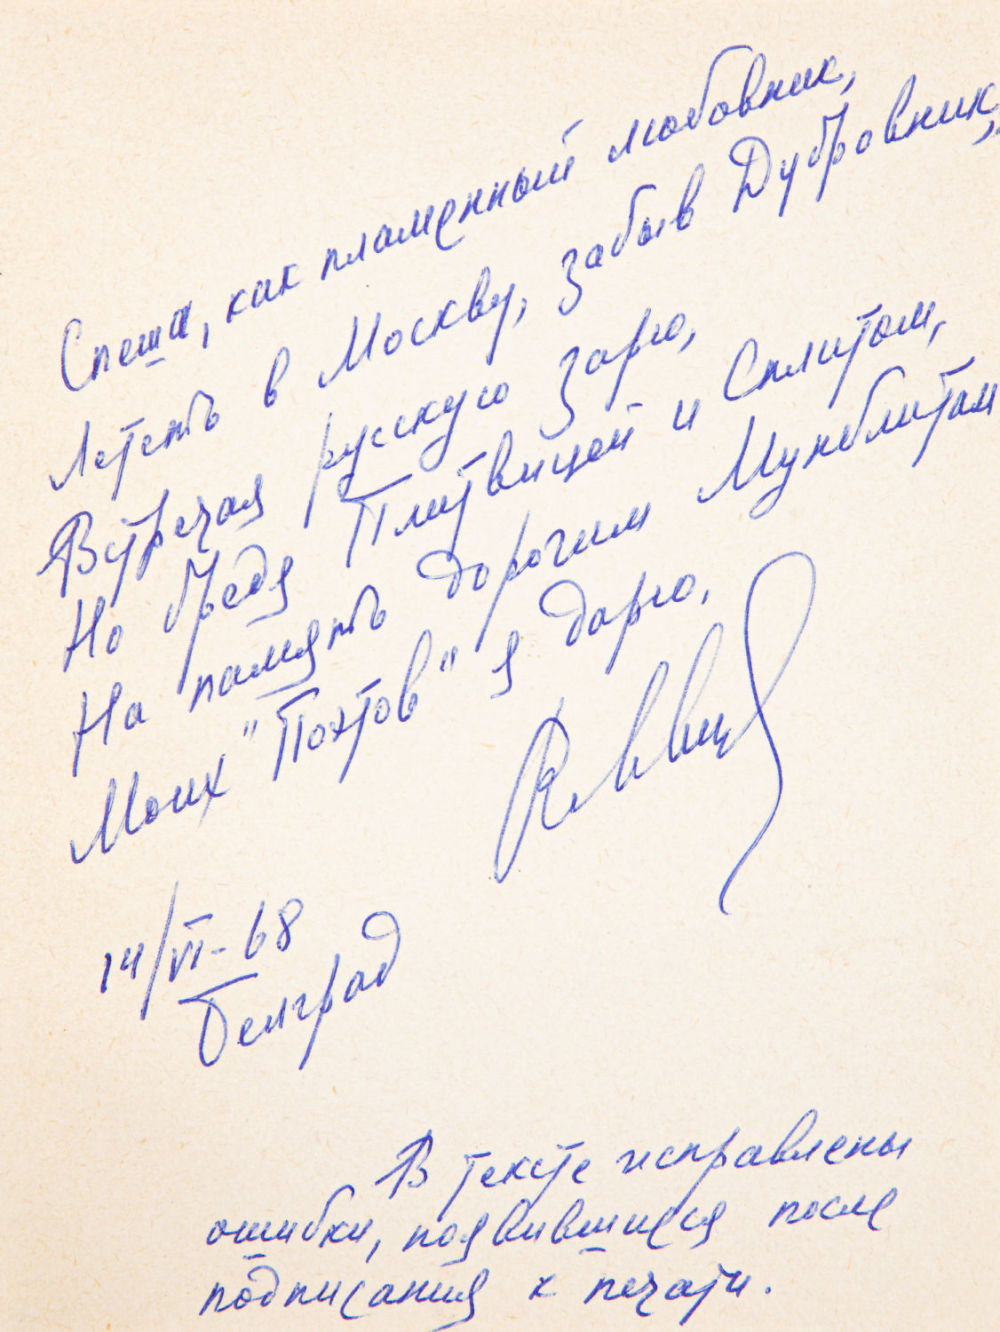 Спеша, как пламенный любовник,
Лететь в Москву, забыв Дубровник,
Встречая русскую зарю,
Но бредя Плитвицей и Сплитом,
На память дорогим Мунблитам
Моих "Поэтов" я дарю.
14/VI-68
Белград
В тексте исправлены
ошибки, появившиеся после
подписания к печати.